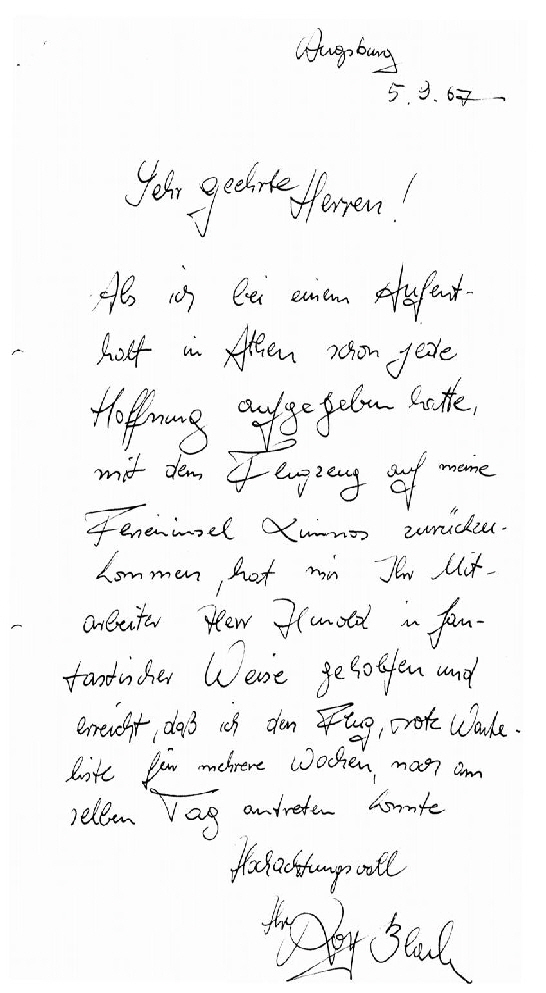 Augsburg
5.9.67
Sehr geehrte Herren!
Als ich bei einem Aufent-
halt in Athen schon jede
Hoffnung aufgegeben hatte,
mit dem Flugzeug auf meine
Ferieninsel Limnos zurückzu-
kommen, hat mir Ihr Mit-
arbeiter Herr in fan-
tastischer Weise geholfen und
erreicht, daß ich den Flug, trotz Warte-
liste für mehrere Wochen, noch am
selben Tag antreten konnte
Hochachtungsvoll
Ihr